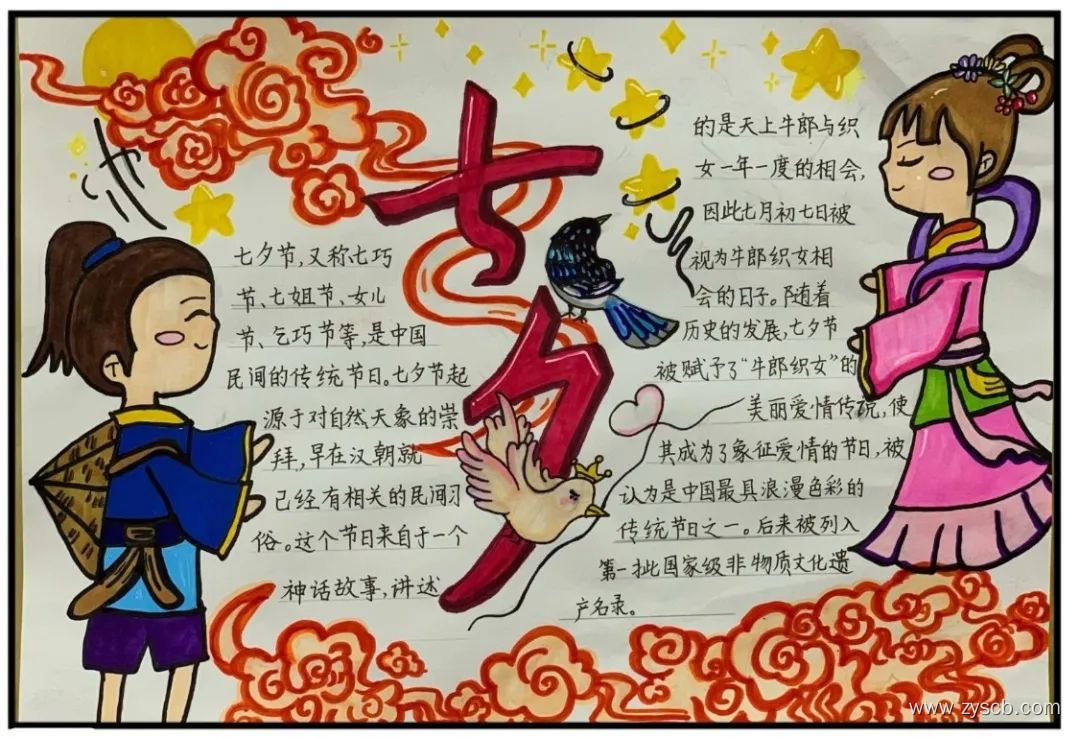 七夕
七夕节,又称七巧
节、七姐节、女儿
节、乞巧节等,是中国
民间的传统节日。七夕节起
源于对自然天象的崇
拜,早在汉朝就
已经有相关的民间习
俗。这个节日来自于一个
神话故事,讲述
的是天上牛郎与织
女一年一度的相会,
因此七月初七日被
视为牛郎织女相
会的日子。随着
历史的发展,七夕节
被赋予了“牛郎织女”的
美丽爱情传说,使
其成为了象征爱情的节日,被
认为是中国最具浪漫色彩的
传统节日之一。后来被列入
第一批国家级非物质文化遗
产名录。
www.zyscb.com